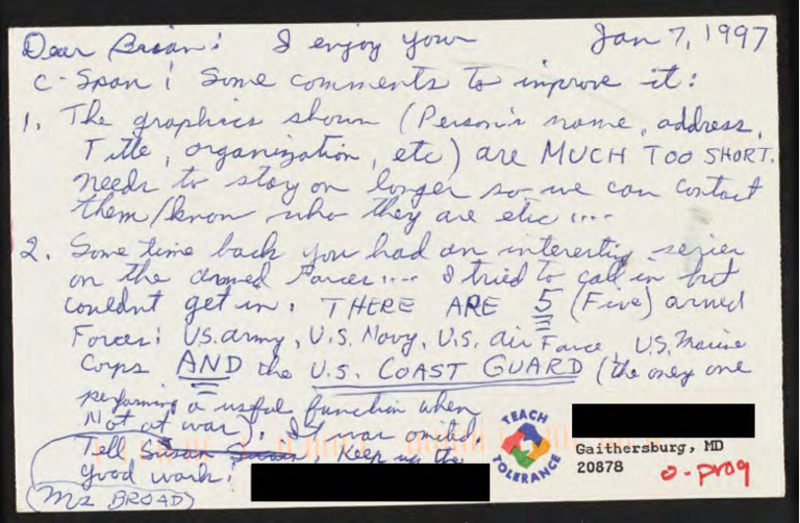 Dear Brian: I enjoy your Jan 7, 1997
C-Span; Some comments to improve it:
1. The graphics shown (Person's name, address,
Title, organization, etc) are MUCH TOO SHORT.
needs to stay on longer so we can contact
them/know who they are etc ....
2. Some time back you had an interesting series
on the armed Forces .... I tried to call in but
couldnt get in. THERE ARE 5 (Five) armed
Forces: US. Army, U.S. Navy, U.S. Air Force, U.S. Marine
Corps AND the U.S. COAST GUARD (the only one
performing a useful function when
Not at war). It was omitted.
Tell Susan Keep up the
good work!
(Ms BROAD)
TEACH
TOLERANCE
Gaithersburg, MD
20878
o-prog